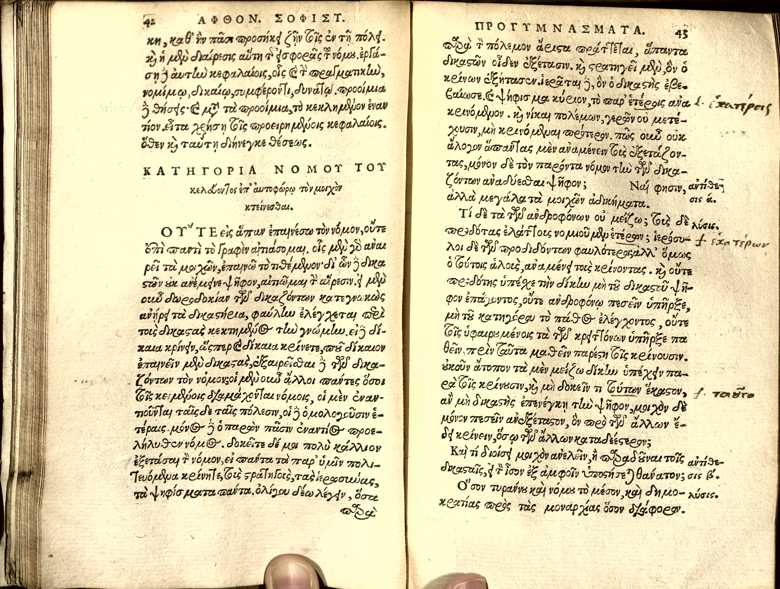 42 ΑΦΘΟΝ. ΣΟΦΙΣΤ.
κη, καθ' ἣν πᾶσι προσήκει ζῆν τοῖς ἐν τῇ πόλει.
καὶ ἡ μὲν διαίρεσις αὕτη τῆς εἰσφορᾶς τοῦ νόμου. ἐργά-
σῃ δὲ αὐτὴν κεφαλαίοις, οἷς καὶ τὴν πραγματικὴν,
νομίμῳ, δικαίῳ, συμφέροντι, δυνατῷ. προοίμια
δὲ θήσεις. καὶ μετὰ τὰ προοίμια, τὸ κεκλημένον ἐναν-
τίον. εἶτα χρήσῃ τοῖς προειρημένοις κεφαλαίοις.
ὅθεν καὶ ταύτῃ διήνεγκε θέσεως.
ΚΑΤΗΓΟΡΙΑ ΝΟΜΟΥ ΤΟΥ
κελεύοντος ἐπ' αὐτοφώρῳ τὸν μοιχὸν
κτείνεσθαι.
ΟΥ῎ΤΕ εἰς ἅπαν ἐπαινέσω τὸν νόμον, οὔτε
ἐπὶ παντὶ τὸ γραφὲν αἰτιάσομαι. οἷς μὲν γὰρ ἀναι
ρεῖ τὰ μοιχῶν, ἐπαινῶ τὸ τιθέμενον· δι' ὧν δὲ δικα
στῶν οὐκ ἀνέμεινε ψῆφον, αἰτιῶμαι τὴν αἵρεσιν. εἰ μὲν
οὖν δωροδοκίαν τῶν δικαζόντων κατεγνωκὼς
ἀνῄρει τὰ δικαστήρια, φαύλην ἐλέγχεται περὶ
τοὺς δικαστὰς κεκτημένος τὴν γνώμην. εἰ δὲ δί-
καια κρίνειν, ὥσπερ καὶ δίκαια κρίνετε, πῶς δίκαιον
ἐπαινεῖν μὲν δικαστὰς, ἐξαιρεῖσθαι δὲ τῶν δικα-
ζόντων τὸν νόμον; οἱ μὲν οὖν ἄλλοι πάντες ὅσοι
τοῖς κειμένοις διαμάχονται νόμοις, οἱ μὲν ἐναν-
τιοῦνται ταῖσδε ταῖς πόλεσιν, οἱ δὲ ὁμολογοῦσιν ἑ-
τέραις· μόνος δὲ ὁ παρὼν πᾶσιν ἐναντίος προε-
λήλυθε νόμος. δοκεῖτε δέ μοι πολὺ κάλλιον
ἐξετάσαι τὸν νόμον, εἰ πάντα τὰ παρ' ὑμῖν πολι-
τευόμενα κρίνητε, τοὺς στρατηγοὺς, τὰς ἱερωσύνας,
τὰ ψηφίσματα πάντα, ὀλίγου δέω λέγειν, ὅσα
παρὰ
ΠΡΟΓΥΜΝΑΣΜΑΤΑ. 43
παρὰ τὸν πόλεμον ἄριστα πράττεται, ἅπαντα
δικαστῶν οἶδεν ἐξέτασιν. καὶ στρατηγεῖ μὲν, ὃν ὁ
κρίνων ἐξήτασεν. ἱερᾶται δὲ, ὃν ὁ δικαστὴς ἐβε-
βαίωσε. καὶ ψήφισμα κύριον, τὸ παρ' ἑτέροις ἀνα
κρινόμενον. καὶ νῖκαι πολέμων, γερῶν οὐ μετέ-
χουσιν, μὴ κρινόμεναι πρότερον. πῶς οὖν οὐκ
ἄλογον ἅπαντας μὲν ἀναμένειν τοὺς ἐξετάζον-
τας, μόνον δὲ τὸν παρόντα νόμον τὴν τῶν δικα-
ζόντων ἀναδύεσθαι ψῆφον; Ναὶ φησιν, ἀντίθε-
ἀλλὰ μεγάλα τὰ μοιχῶν ἀδικήματα. σις ά.
Τί δὲ τὰ τῶν ἀνδροφόνων οὐ μείζω; τοὺς δὲ λύσις.
προδότας ἐλάττους νομιοῦμεν ἑτέρων; ἱερόσυ-
λοι δὲ τῶν προδιδόντων φαυλότεροι; ἀλλ' ὅμως
ὁ τούτοις ἁλοὺς, ἀναμένει τοὺς κρίνοντας. καὶ οὔτε
προδότης ὑπέσχε τὴν δίκην μὴ τοῦ δικαστοῦ ψῆ-
φον ἐπάγοντος, οὔτε ἀνδροφόνῳ πεσεῖν ὑπῆρξε,
μὴ τοῦ κατηγόρου τὸ πάθος ἐλέγχοντος, οὔτε
τοῖς ὑφαιρουμένοις τὰ τῶν κρειττόνων ὑπῆρξε πα
θεῖν. πρὶν ταῦτα μαθεῖν παρέσχῃ τοῖς κρίνουσιν.
οὐκοῦν ἄτοπον τὰ μὲν μείζω δίκην ὑπέχειν πα-
ρὰ τοῖς κρίνουσιν, καὶ μὴ δοκεῖν τι τούτων ἕκαστον,
ἂν μὴ δικαστὴς ἐπενέγκῃ τὴν ψῆφον, μοιχὸν δὲ
μόνον πεσεῖν ἀνεξέταστον, ὃν πρὸ τῶν ἄλλων ἔ-
δει κρίνειν, ὅσῳ τῶν ἄλλων καταδεέστερον;
Καὶ τί διοίσει μοιχὸν ἀνελεῖν, ἢ παραδεῖναι τοῖς ἀντίθε-
δικασταῖς, εἰ τὸν ἴσον ἐξ ἀμφοῖν ὑποστήσεται θάνατον; σις β΄.
Ὅσον τυράννου καὶ νόμου τὸ μέσον, καὶ δημο- λύσις.
κρατίας πρὸς τὰς μοναρχίας ὅσον διάφορον.
f. ἑκατέροις
f. ἑκατέρων
f. ταῦτο